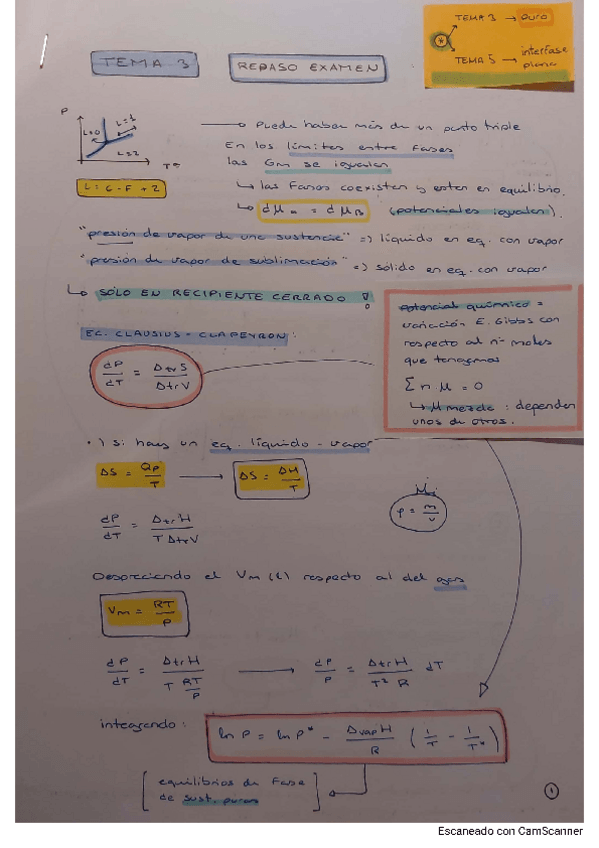 TEMA 3 → puro
TEMA 5 → interfase
plana
TEMA 3
REPASO EXAMEN
P
L=0
L=1
L=2
T
L = C - F + 2
→ Puede haber más de un punto triple
En los límites entre fases
las Gm se igualan
↳ las fases coexisten y estan en equilibrio.
↳ dμα = dμβ (potenciales iguales).
"presión de vapor de una sustancia" => líquido en eq. con vapor
"presión de vapor de sublimación" => sólido en eq. con vapor
↳ SÓLO EN RECIPIENTE CERRADO !
potencial químico =
variación E. Gibbs con
respecto al nº moles
que tengamos
Σ n μ = 0
↳ μ mezcla : dependen
unos de otros.
EC. CLAUSIUS - CLAPEYRON :
dP/dT = ΔtrS/ΔtrV
•) si hay un eq. líquido - vapor
ΔS = Qp/T → ΔS = ΔH/T
ρ = m/v
dP/dT = ΔtrH/T ΔtrV
Despreciando el Vm (l) respecto al del gas
Vm = RT/P
dP/dT = ΔtrH/T RT/P → dP/P = ΔtrH/T² R dT
integrando :
ln P = ln P* - ΔvapH/R (1/T - 1/T*)
equilibrios de fase
de sust. puras
1
Escaneado con CamScanner